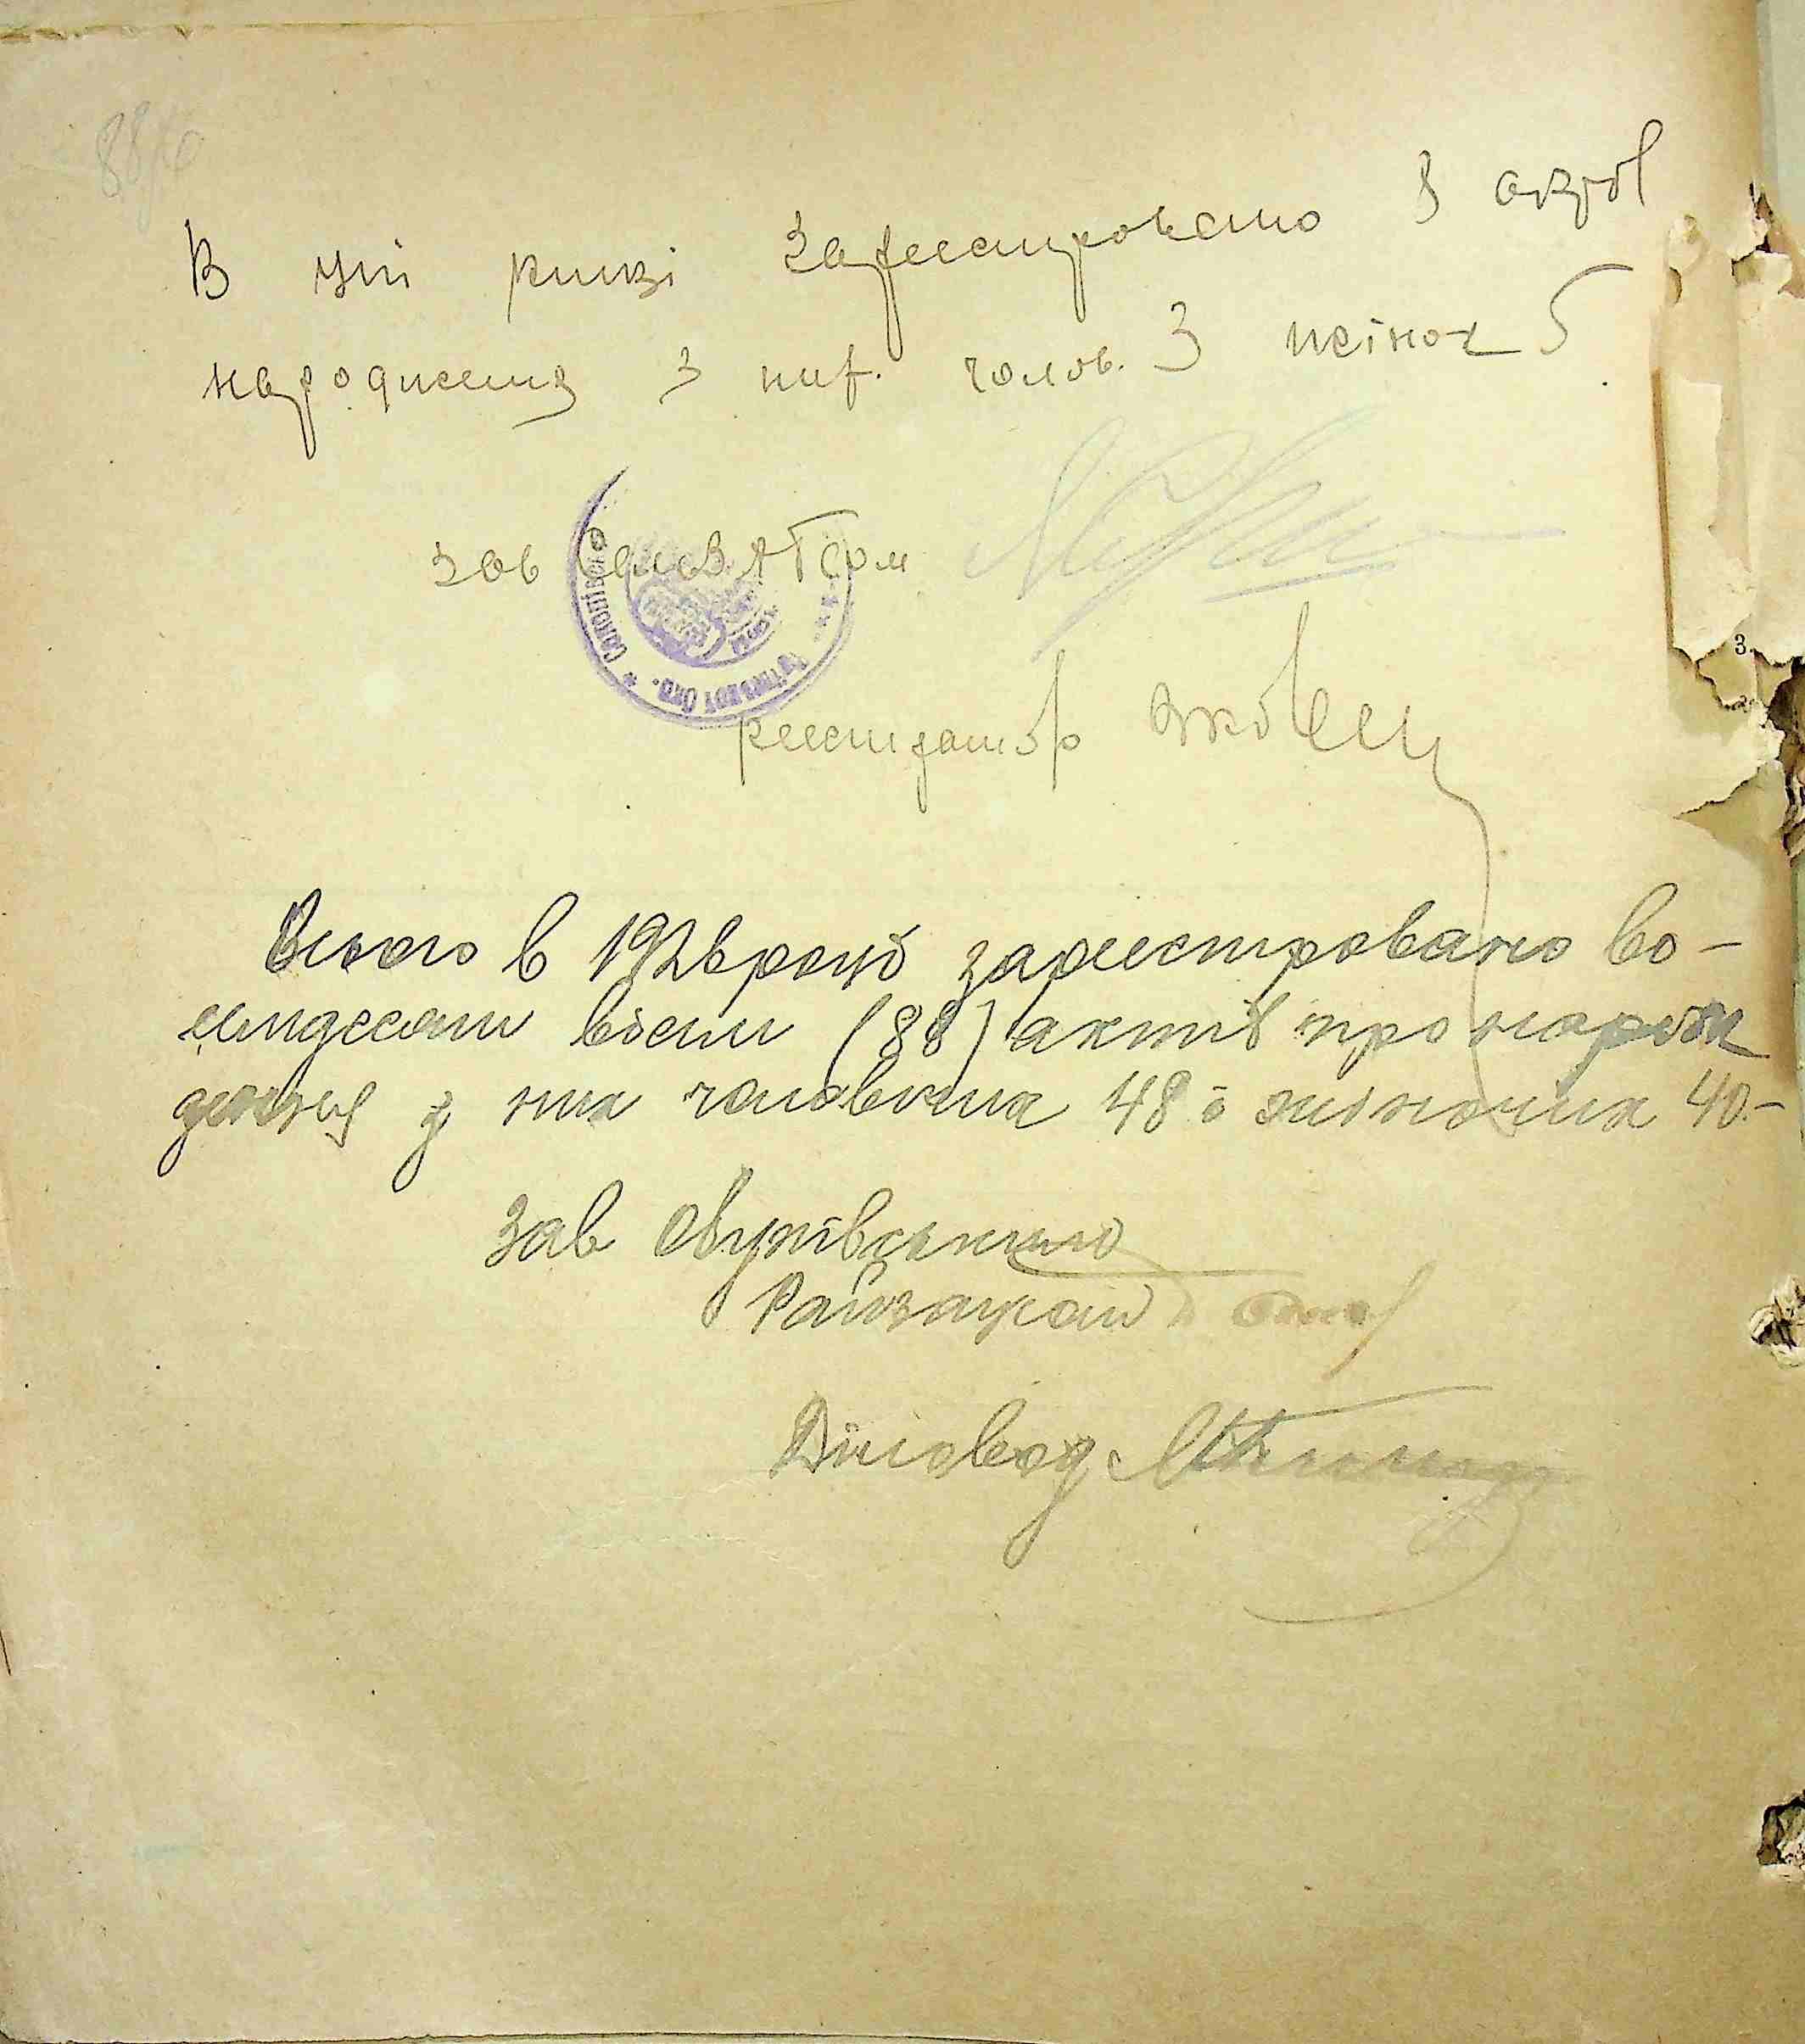 88/б
В цій книзі зареєстровано 8 актов
народження з них. чолов. 3 жінок 5
Зав сільЗАГСом
реєстратор Яковец
Всього в 1926 році зареєстровано во-
симдесят вісим (88) актів про народж
дення з них чоловічих 48 і жіночих 40.-
Зав Обухівським
Райзагсом
Діловод.
3.